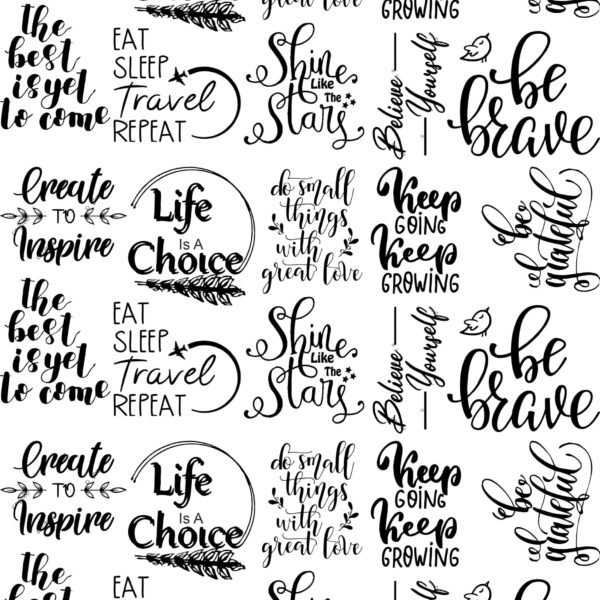 great love
GROWING
the
best
is yet
to come
EAT
SLEEP
Travel
REPEAT
Shine
Like
The
Stars
Believe
Yourself
be
brave
Create
TO
Inspire
Life
IS A
Choice
do small
things
with
great love
Keep
GOING
Keep
GROWING
be
grateful
the
best
is yet
to come
EAT
SLEEP
Travel
REPEAT
Shine
Like
The
Stars
Believe
Yourself
be
brave
Create
TO
Inspire
Life
IS A
Choice
do small
things
with
great love
Keep
GOING
Keep
GROWING
be
grateful
the
best
EAT